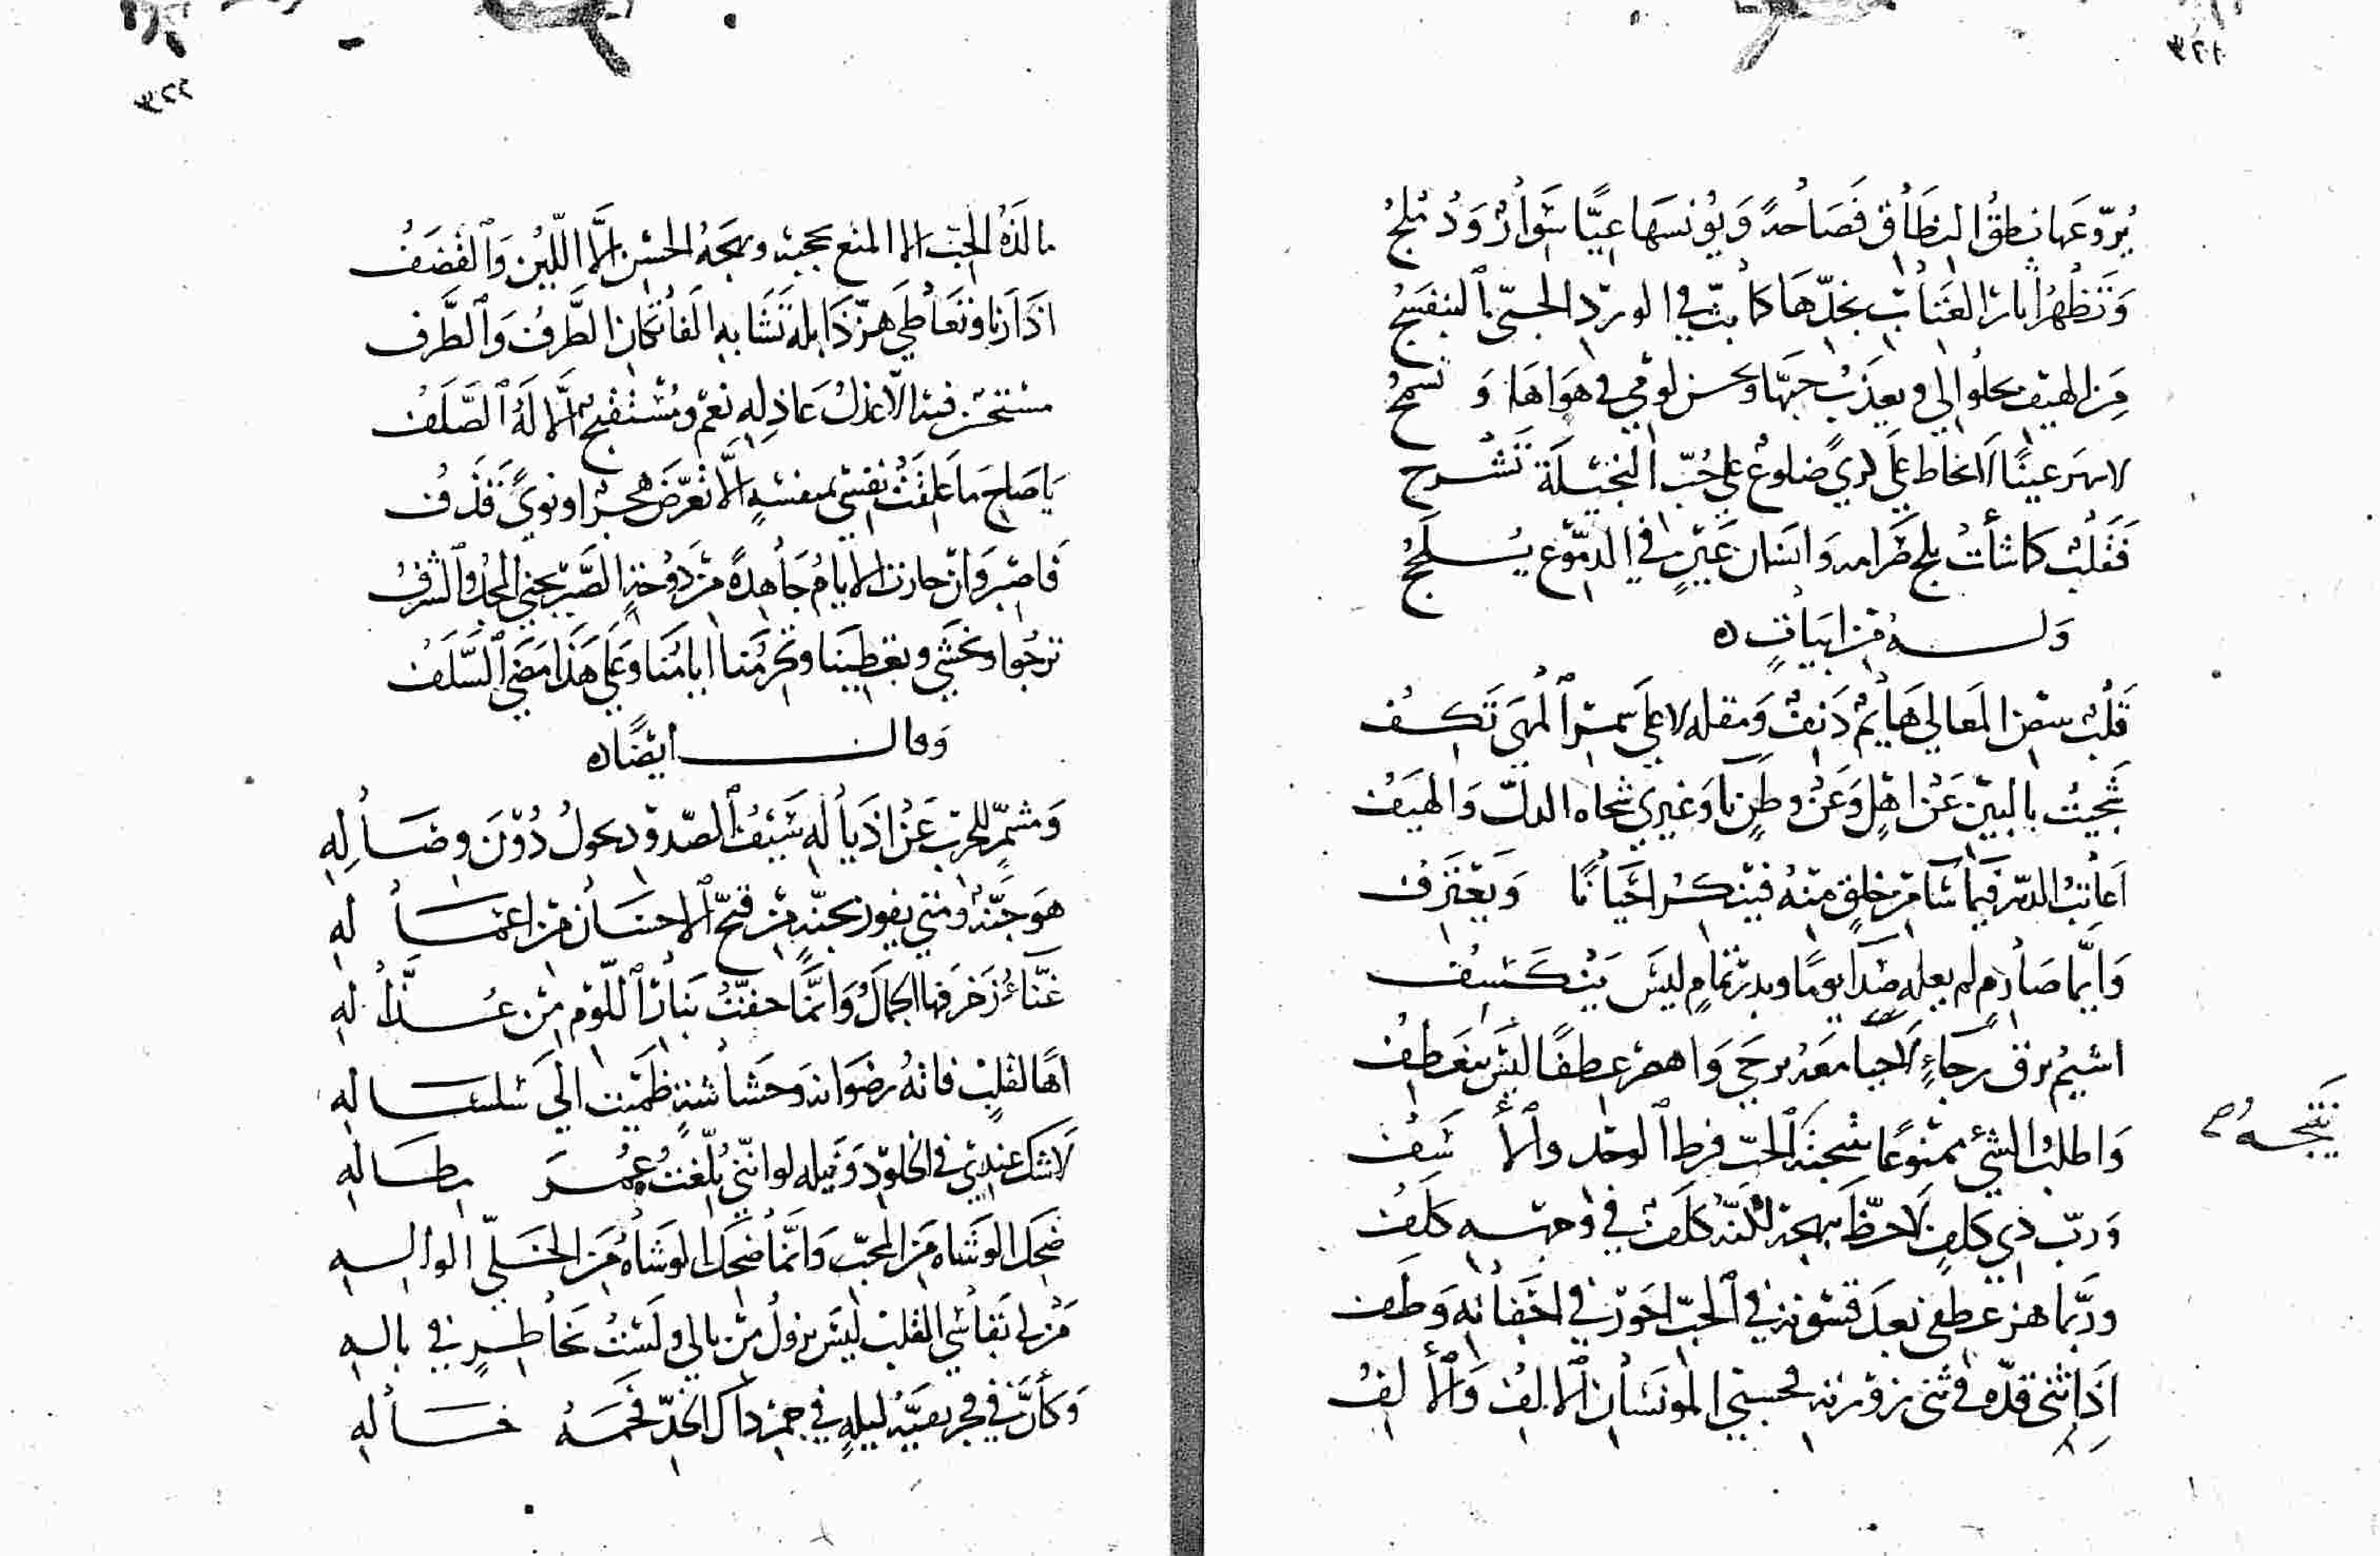 ٣٢١
يروعها نطق النطاق فصاحة ويونسها عيًّا سوار ودملج
وتظهر اثار العتاب بخدها كما بث في الورد الجنى البنفسج
من الهيف يحلوا لي ويعذب حبها ويحسن لومي في هواها و تسمج
لاسهر عينًا لا تخاط على كرى ضلوع على حب البخيلة تشرج
فقلب كما شأت يلج غرامه وانسان عين في الدموع يسلج
وله من ابيات ه
قلب ببعض المعالي هايم دنف ومقلة لا على سمر المهى تكف
شجيت بالبين عن اهل وعن وطن نا وغيري شجاه الدل والهيف
اعاتب الدهر فيما شا من خلق منه فينكر احيانًا ويعترف
وايما صارم لم يعله صدأ يومًا وبدر تمام ليس ينكسف
اشيم برق رجاء لا حيا معه يرجى واهصر عطفًا ليس ينعطف
واطلب الشي ممنوعًا الحب فرط الوجد والأسف
نتيجه
ورب ذي كلف لاحظ بهجة لكنه كلف في وجهه كلف
وربما هز عطفي بعد قسوته في الحب احور في اجفانه وطف
اذا انثنى قده في ثنى بردته فحسبي المونسان الالف والألف
٣٢٢
ما لذة الحب الا المنع يحجبه وبهجة الحسن إلّا اللين والقضف
اذا رنا وتعاطى هز ذابله تشابه الفاتكان الطرف والطرف
مستحسن فيه الا عذل عاذله نعم ومستقبح إلّا له الصلف
يا صاح ما علقت نفسي بمنفسة إلّا تعرض هجر او نوى قذف
فاصبر وان حارت الايام جاهدة من دوحة الصبر يجنى المجد والشرف
نرجوا ونخشى وتعطينا وتحرمنا ايامنا وعلى هذا مضى السلف
وقال أيضًا ه
ومشمر للحرب عن اذياله سيف الصدود يحول دون وصاله
هو جنة ومتى يفوز بجنة من قبح الاحسان من اعماله
غناء زخرفها الجمال وانما حفت بنار اللوم من عذاله
اهًا لقلب فاته رضوانه وحشاشة ظميت الى سلساله
لا شك عندي في الخلود ونيله لو انني بلغت عمر مطاله
ضحك الوشاه من المحب وانما ضحك الوشاه من الخلي الواله
من لي بقاسي القلب ليس يزول من بالي ولست بخاطر في باله
وكأن في فجر بقية ليلة في جمر ذاك الخد فحمة خاله